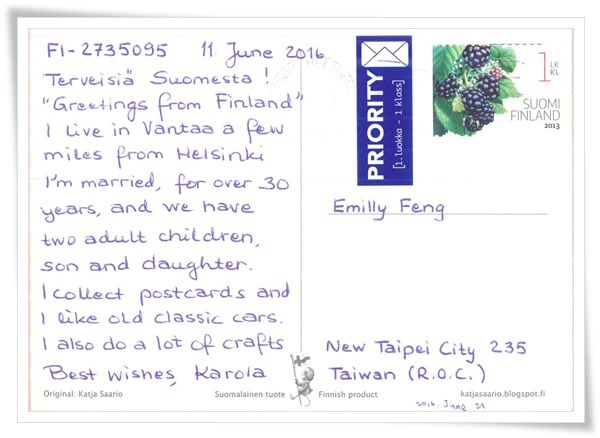 FI-2735095 11 June 2016
Terveisiä Suomesta!
"Greetings from Finland"
I live in Vantaa a few
miles from Helsinki
I'm married, for over 30
years, and we have
two adult children,
son and daughter.
I collect postcards and
I like old classic cars.
I also do a lot of crafts
Best wishes, Karola
PRIORITY
[1.luokka - 1 klass]
1 LK
KL
SUOMI
FINLAND
2013
Emilly Feng
New Taipei City 235
Taiwan (R.O.C.)
Original: Katja Saario Suomalainen tuote Finnish product katjasaario.blogspot.fi
2016. June. 21